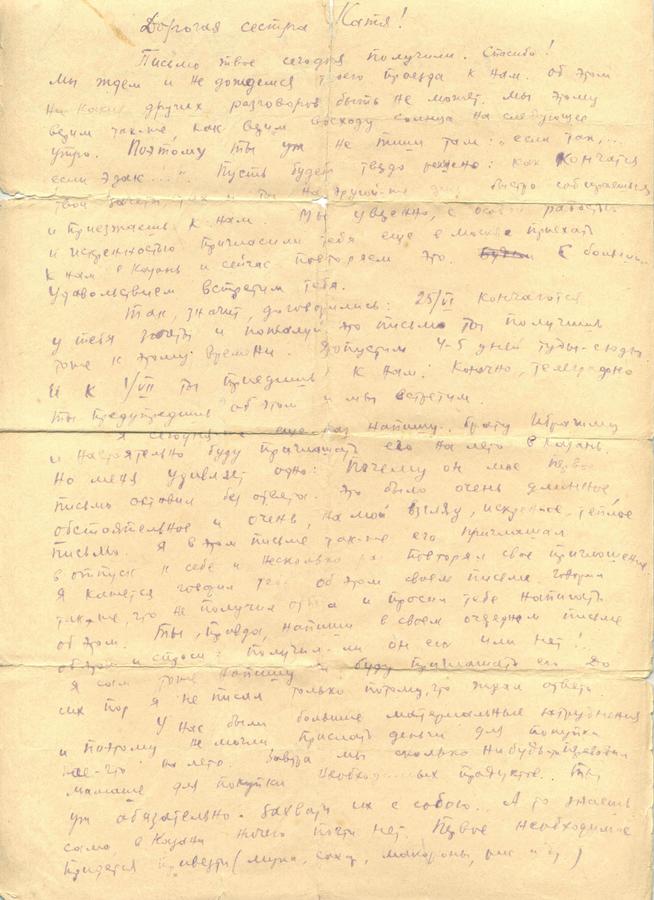 Дорогая сестра Катя!
Письмо твое сегодня получили. Спасибо!
Мы ждем и не дождемся твоего приезда к нам. Об этом
ни каких других разговоров быть не может. Мы этому
верим так-же, как верим восходу солнца на следующее
утро. Поэтому ты уж не пиши там: "если так,...
если эдак...". Пусть будет твердо решено: как кончатся
твои зачеты, так и ты на другой-же день быстро собираешься
и приезжаешь к нам. Мы уверенно, с особой радостью
и искренностью пригласили тебя еще в Москве приехать
к нам в Казань и сейчас повторяем это. С большим
удовольствием встретим тебя.
Так, значит, договорились: 25/VI кончаются
у тебя зачеты и пожалуй это письмо ты получишь
тоже к этому времени. Допустим 4-5 дней туды-сюды.
И к 1/VII ты приедешь к нам. Конечно, телеграфно
ты предупредишь об этом и мы встретим.
Я сегодня-же еще раз напишу брату Ибрагиму
и настоятельно буду приглашать его на лето в Казань.
Но меня удивляет одно: Почему он мое первое
письмо оставил без ответа. Это было очень длинное
обстоятельное и очень, на мой взгляд, искреннее, теплое
письмо. Я в этом письме так-же его приглашал
в отпуск к себе и несколько раз повторял свое приглашение.
Я кажется говорил тебе об этом своем письме. Говорил
так-же, что не получил ответа и просил тебя написать
об этом. Ты, правда, напиши в своем очередном письме
об этом и спроси: получил-ли он его или нет!
Я сам тоже напишу и буду приглашать его. До
сих пор я не писал только потому, что ждал ответа.
У нас были большие материальные затруднения
и поэтому не могли прислать деньги для покупки
кое-что на лето. Завтра мы сколько нибудь переведем
мамаше для покупки необходимых продуктов. Ты
уж обязательно захвати их с собою... А то знаешь
сама, в Казани ничего почти нет. Первое необходимое
придется привезти (мука, сахар, макароны, рис и др.)